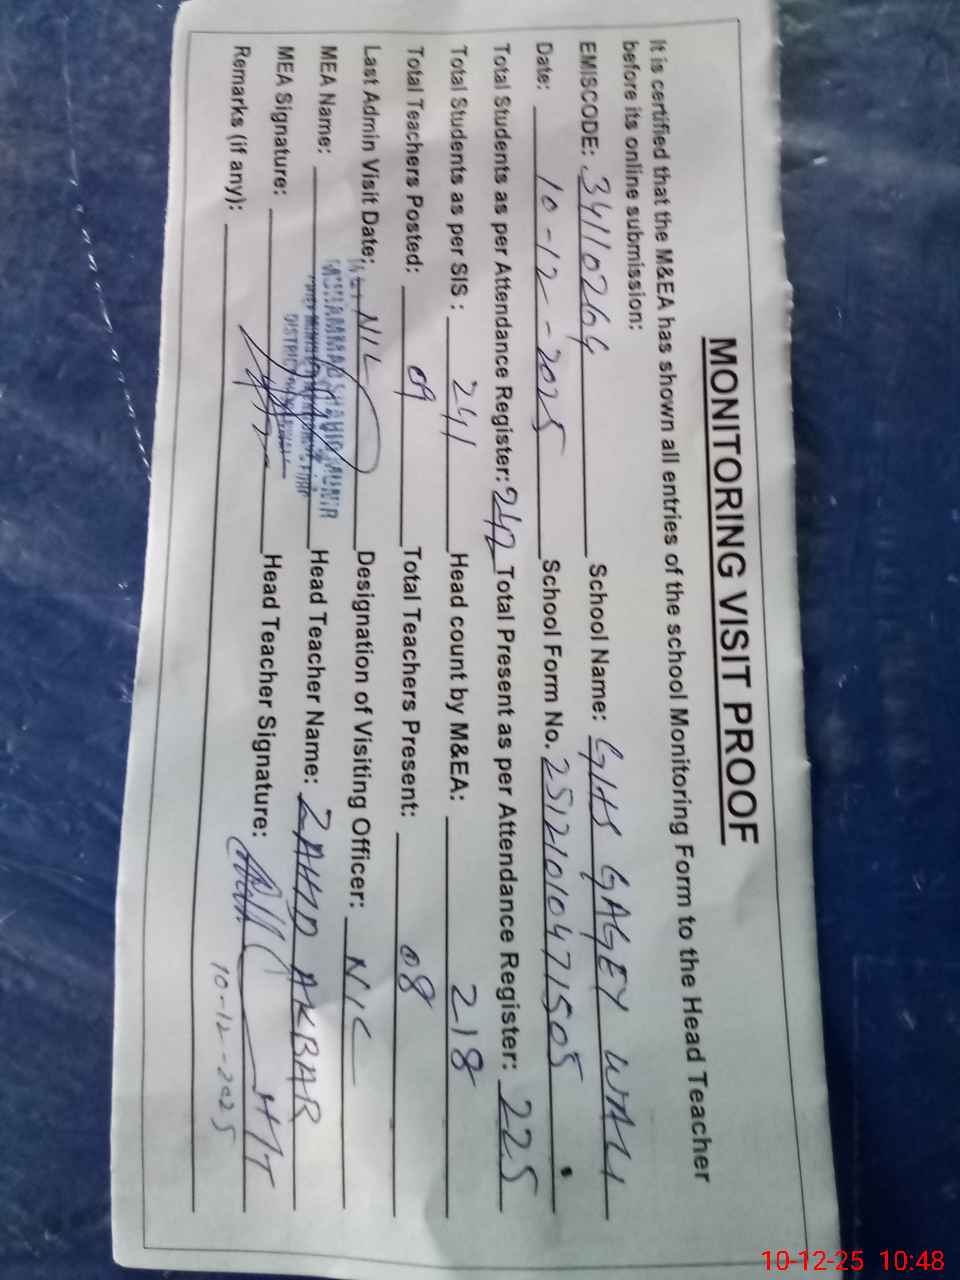 MONITORING VISIT PROOF
It is certified that the M&EA has shown all entries of the school Monitoring Form to the Head Teacher
before its online submission:
EMISCODE: 34110264 School Name: GHS GAGEY WALI
Date: 10-12-2025 School Form No. 2512101047 1505
Total Students as per Attendance Register: 242 Total Present as per Attendance Register: 225
Total Students as per SIS: 241 Head count by M&EA: 218
Total Teachers Posted: 09 Total Teachers Present: 08
Last Admin Visit Date: NIL Designation of Visiting Officer: NIL
MEA Name: MUHAMMAD SHAHID MUNIR Head Teacher Name: ZAHID AKBAR
DISTRICT
MEA Signature: Head Teacher Signature: HT
10-12-2025
Remarks (if any):
10-12-25 10:48